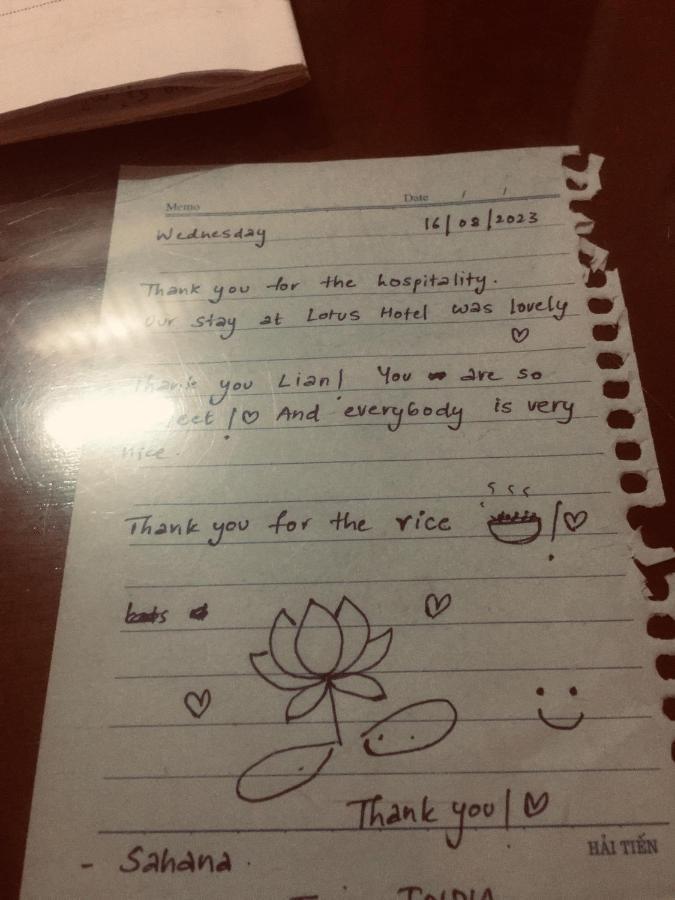 Memo Date / /
Wednesday 16/08/2023
Thank you for the hospitality.
Our stay at Lotus Hotel was lovely
♡
Thank you Lian! You are so
♡ And everybody is very
nice.
Thank you for the rice !♡
Thank you! ♡
HẢI TIẾN
- Sahana.
INDIA